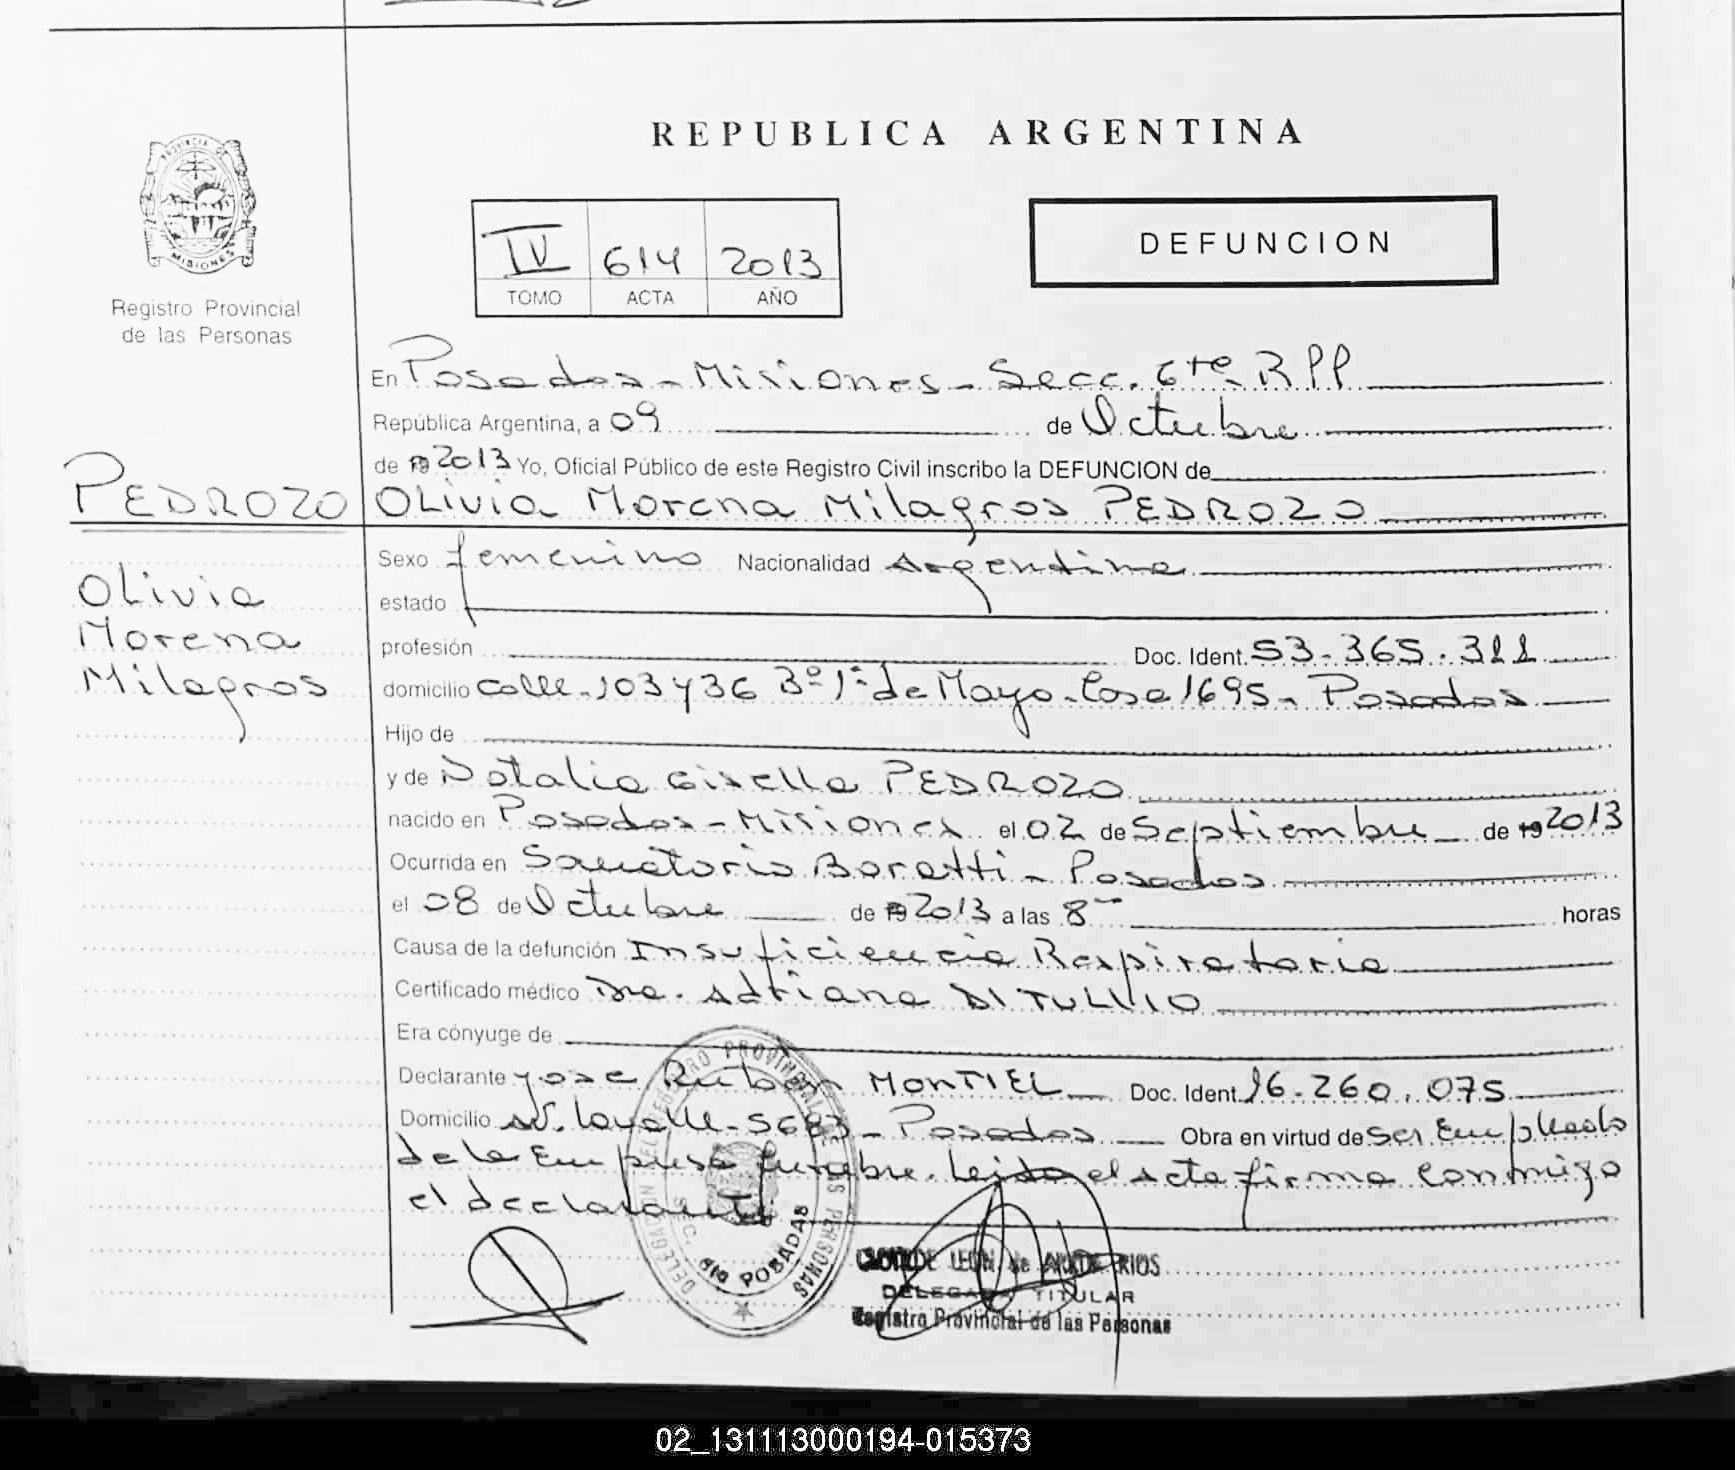 PROVINCIA DE
MISIONES
Registro Provincial
de las Personas
REPUBLICA ARGENTINA
IV 614 2013
TOMO ACTA AÑO
DEFUNCION
En Posadas - Misiones - Secc. 6ta RPP
República Argentina, a 09 de Octubre
de 19 2013 Yo, Oficial Público de este Registro Civil inscribo la DEFUNCION de
PEDROZO
Olivia
Morena
Milagros
Olivia Morena Milagros PEDROZO
Sexo femenino Nacionalidad Argentina
estado
profesión Doc. Ident. 53.365.311
domicilio calle 103 y 36 Bº 1º de Mayo - Casa 1695 - Posadas
Hijo de
y de Natalia Gisella PEDROZO
nacido en Posadas - Misiones el 02 de Septiembre de 19 2013
Ocurrida en Sanatorio Boratti - Posadas
el 08 de Octubre de 19 2013 a las 8 horas
Causa de la defunción Insuficiencia Respiratoria
Certificado médico Dra. Adriana DI TULLIO
Era cónyuge de
Declarante Jose Ruben MONTIEL Doc. Ident. 16.260.075
Domicilio Av. Lavalle - 5683 - Posadas Obra en virtud de ser Empleado
de la Empresa funebre. Leida el acta firma conmigo
el declarante
DELEGACION DEL REGISTRO PROVINCIAL DE LAS PERSONAS
SEC. 6ta POSADAS
LEON de RIOS
DELEGADA TITULAR
Registro Provincial de las Personas
02_131113000194-015373